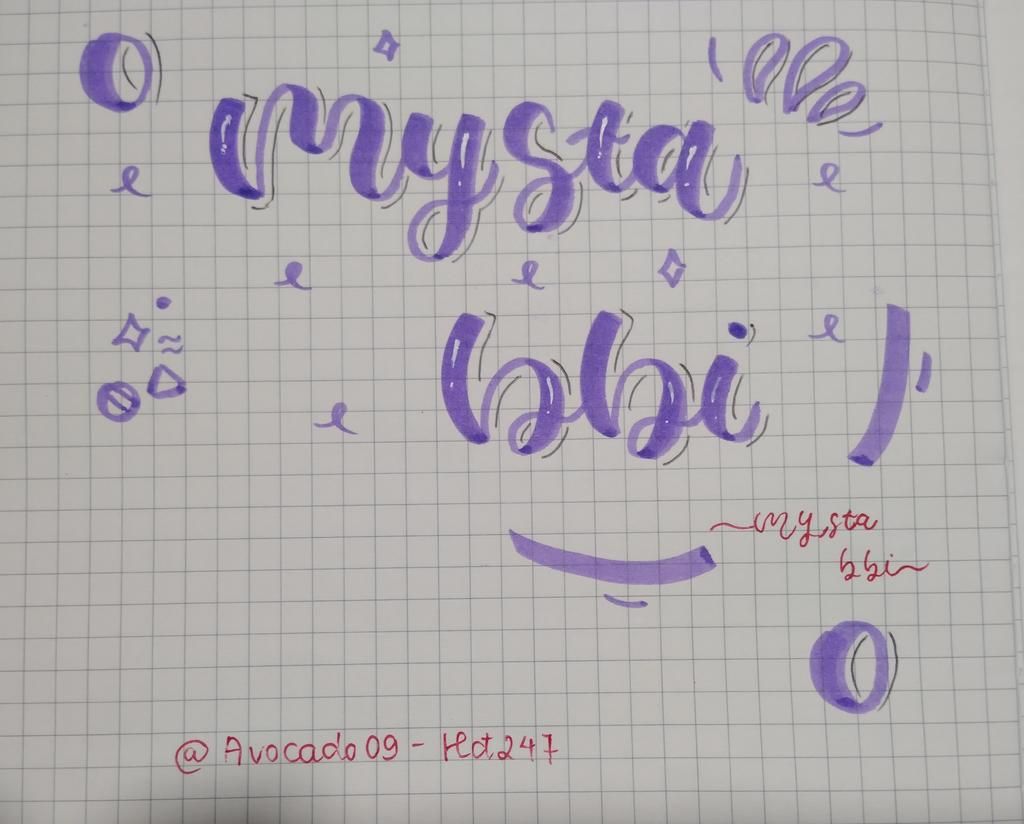 mysta
bbi
~mysta
bbi~
@Avocado09 - Hdt247